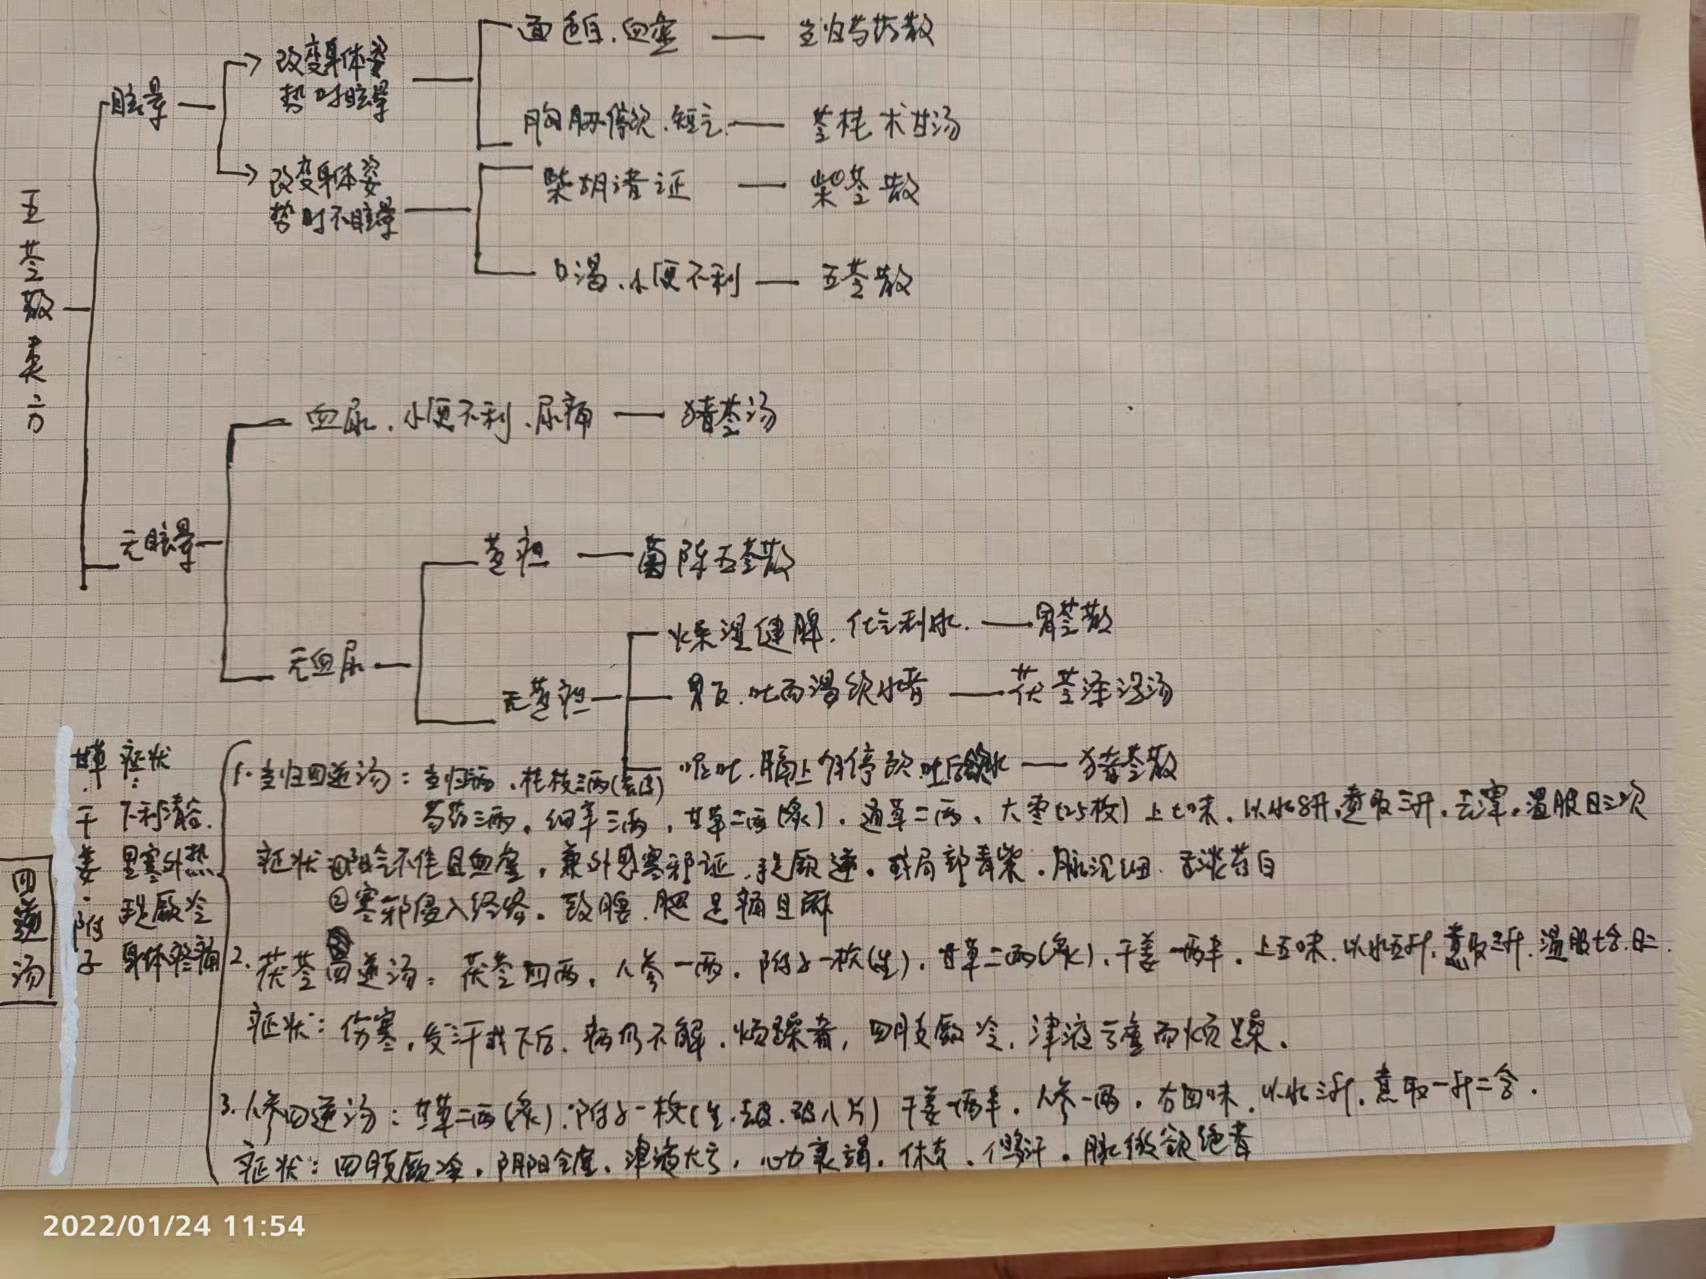 五苓散类方
眩晕
改变身体姿
势时眩晕
面色白、血虚 — 当归芍药散
胸胁停饮、短气 — 苓桂术甘汤
改变身体姿
势时不眩晕
柴胡诸证 — 柴苓散
口渴、小便不利 — 五苓散
无眩晕
血尿、小便不利、尿痛 — 猪苓汤
无血尿
黄疸 — 茵陈五苓散
无黄疸
燥湿健脾、化气利水 — 胃苓散
胃反、吐而渴欲水者 — 茯苓泽泻汤
呕吐、膈上有停饮 吐后饮水 — 猪苓散
四逆汤
甘草、干姜、附子
症状:
下利清谷、
里寒外热
手足厥冷
身体疼痛
1. 当归四逆汤:当归三两、桂枝三两(去皮)
芍药三两、细辛三两、甘草二两(炙)、通草二两、大枣(25枚)上七味,以水8升,煮取三升,去滓,温服日三次
症状 ①阳气不住且血虚,兼外感寒邪证,手足厥逆。或局部青紫。脉沉细 舌淡苔白
②寒邪侵入经络。致腰、腿、足痛且麻
2. 茯苓四逆汤:茯苓四两、人参一两、附子一枚(生)、甘草二两(炙)、干姜一两半。上五味,以水五升,煮取三升,温服七合,日二.
症状:伤寒,发汗或下后,病仍不解,烦躁者,四肢厥冷,津液亏虚而烦躁。
3. 人参四逆汤:甘草二两(炙)附子一枚(生、去皮、破八片)干姜一两半,人参一两,右四味,以水三升,煮取一升二合.
症状:四肢厥冷,阴阳全虚,津液大亏,心力衰竭,休克、脉微欲绝者
2022/01/24 11:54